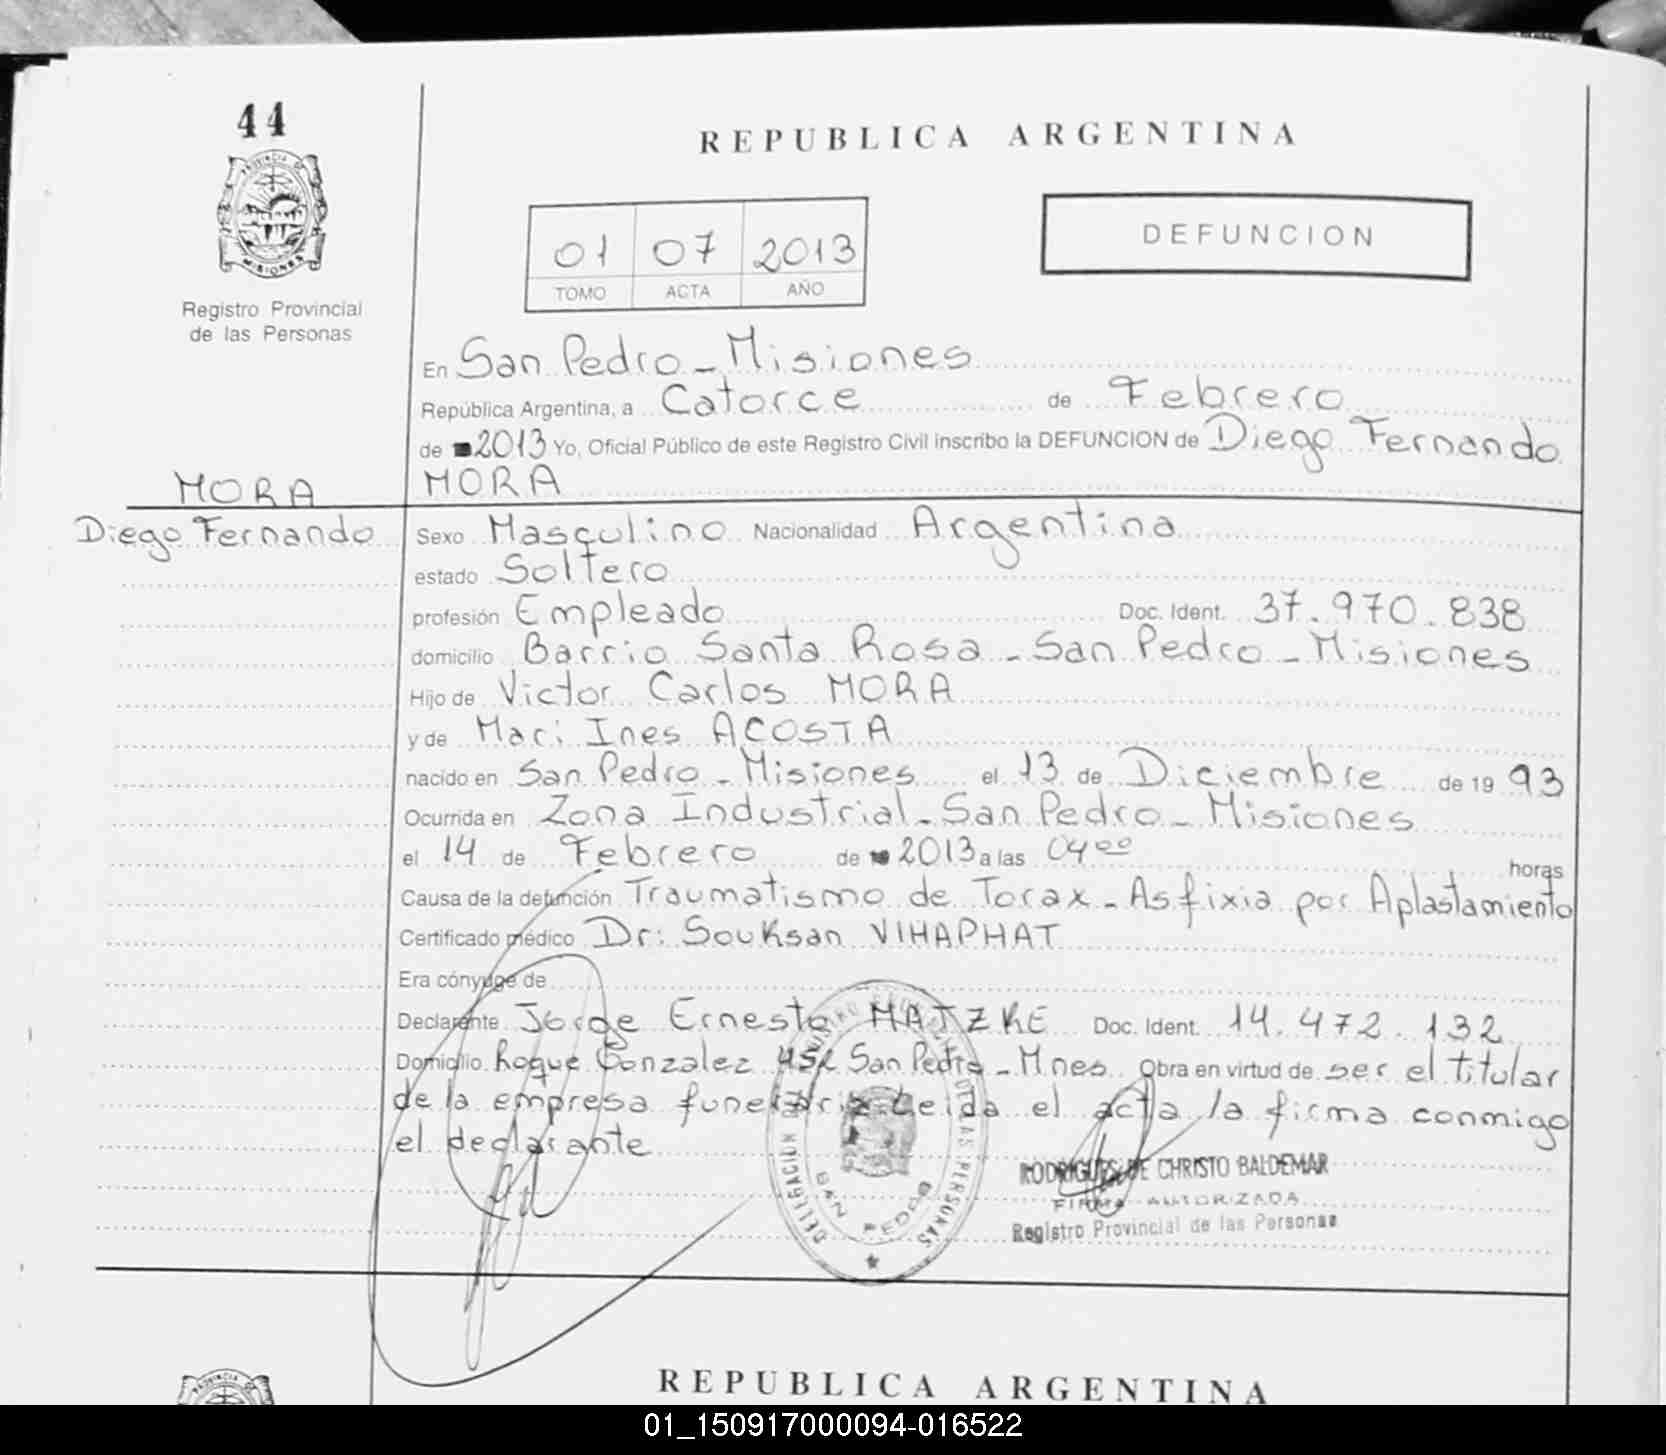 44
PROVINCIA DE
MISIONES
Registro Provincial
de las Personas
REPUBLICA ARGENTINA
01 07 2013
TOMO ACTA AÑO
DEFUNCION
En San Pedro - Misiones
República Argentina, a Catorce de Febrero
de 2013 Yo, Oficial Público de este Registro Civil inscribo la DEFUNCION de Diego Fernando
MORA
MORA
Diego Fernando
Sexo Masculino Nacionalidad Argentina
estado Soltero
profesión Empleado Doc. Ident. 37.970.838
domicilio Barrio Santa Rosa - San Pedro - Misiones
Hijo de Victor Carlos MORA
y de Mari Ines ACOSTA
nacido en San Pedro - Misiones el 13 de Diciembre de 19 93
Ocurrida en Zona Industrial - San Pedro - Misiones
el 14 de Febrero de 2013 a las 04 00 horas
Causa de la defunción Traumatismo de Torax - Asfixia por Aplastamiento
Certificado médico Dr: Souksan VIHAPHAT
Era cónyuge de
Declarante Jorge Ernesto MATZKE Doc. Ident. 14.472.132
Domicilio Roque Gonzalez San Pedro - Mnes Obra en virtud de ser el titular
de la empresa funeraria Leida el acta la firma conmigo
el declarante
DELEGACION DE LAS PERSONAS
SAN PEDRO
RODRIGUES DE CHRISTO BALDEMAR
FIRMA AUTORIZADA
Registro Provincial de las Personas
PROVINCIA
REPUBLICA ARGENTINA
01_150917000094-016522